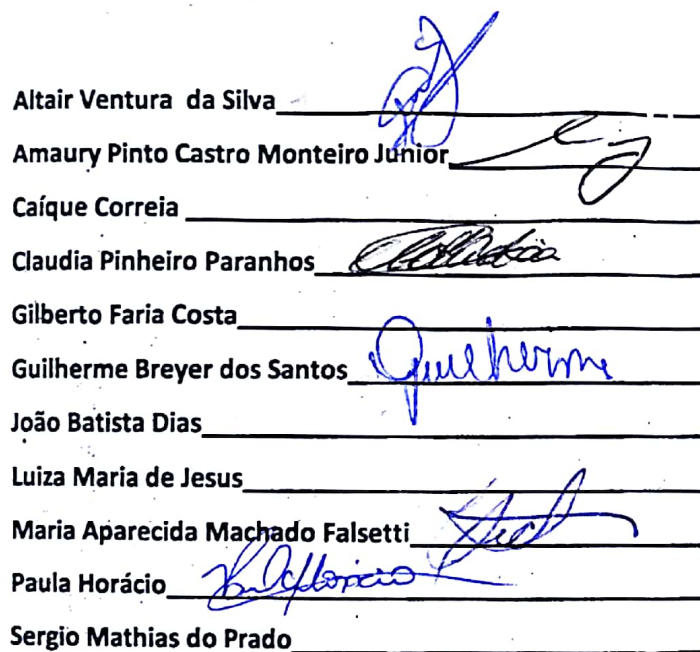 Altair Ventura da Silva
Amaury Pinto Castro Monteiro Junior
Caíque Correia
Claudia Pinheiro Paranhos
Gilberto Faria Costa
Guilherme Breyer dos Santos Guilherme
João Batista Dias
Luiza Maria de Jesus
Maria Aparecida Machado Falsetti
Paula Horácio
Sergio Mathias do Prado